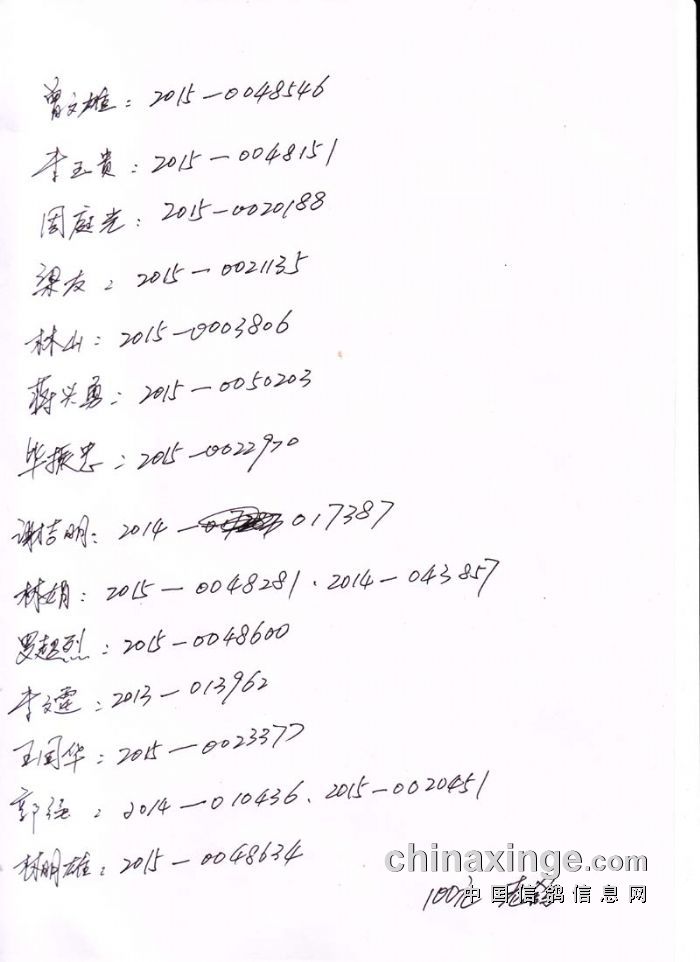 曾文雄：2015-0048546
李玉贵：2015-0048151
周庭光：2015-0020188
梁友：2015-0021135
林山：2015-0003806
蒋兴勇：2015-0050203
毕振忠：2015-0022970
谢吉明：2014-017387
林娟：2015-0048281、2014-043857
罗超烈：2015-0048600
李文霆：2013-013962
王国华：2015-0023377
郭强：2014-010436、2015-0020451
林明雄：2015-0048634
chinaxinge.com
100元
中国信鸽信息网